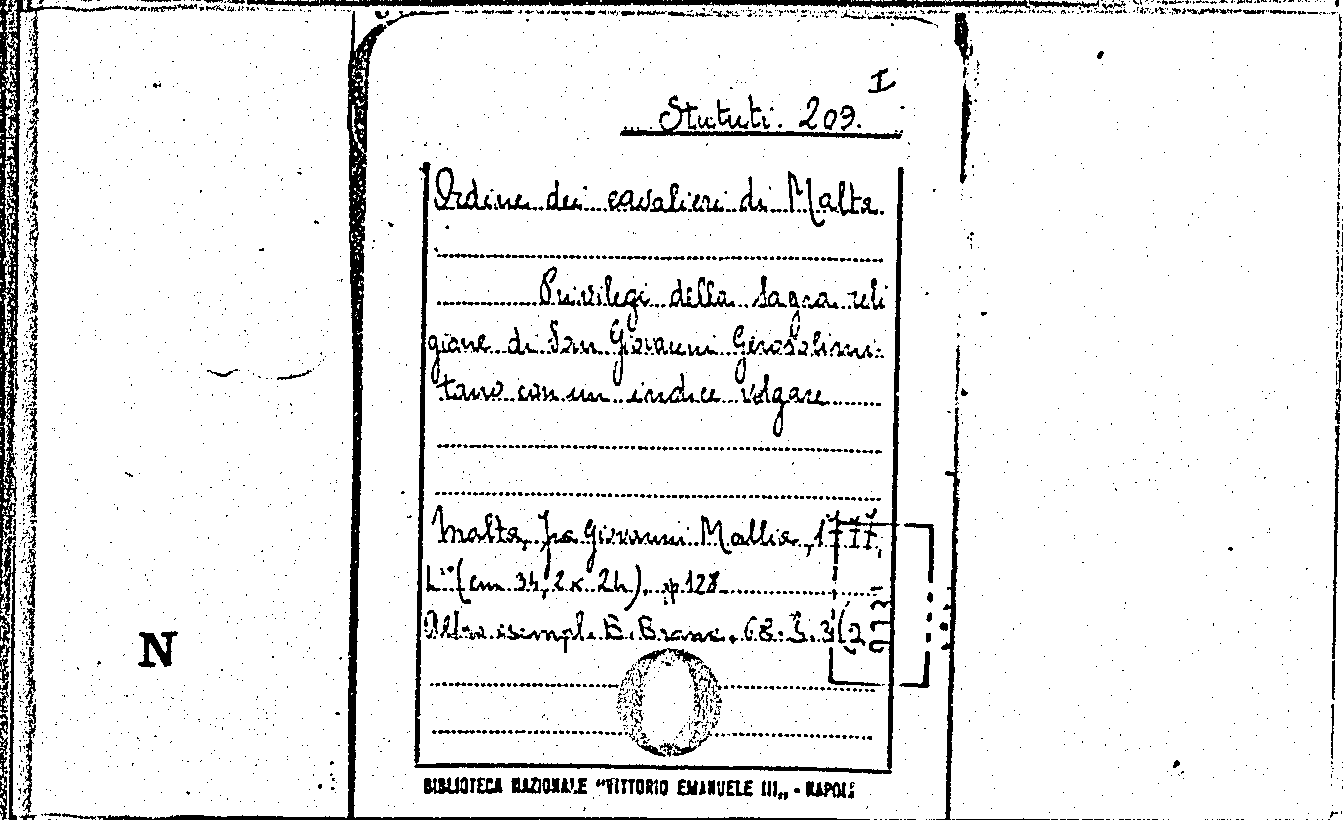 I
Statuti. 209.
Ordine dei cavalieri di Malta
Privilegi della Sagra reli
gione di San Giovanni Gerosolimi-
tano con un indice volgare
Malta, Fra Giovanni Mallia, 1777,
(cm 34,2 x 24). p. 128
Altro esempl. B. Branc. 68. 3. 3 (2
N
BIBLIOTECA NAZIONALE "VITTORIO EMANUELE III„ - NAPOLI